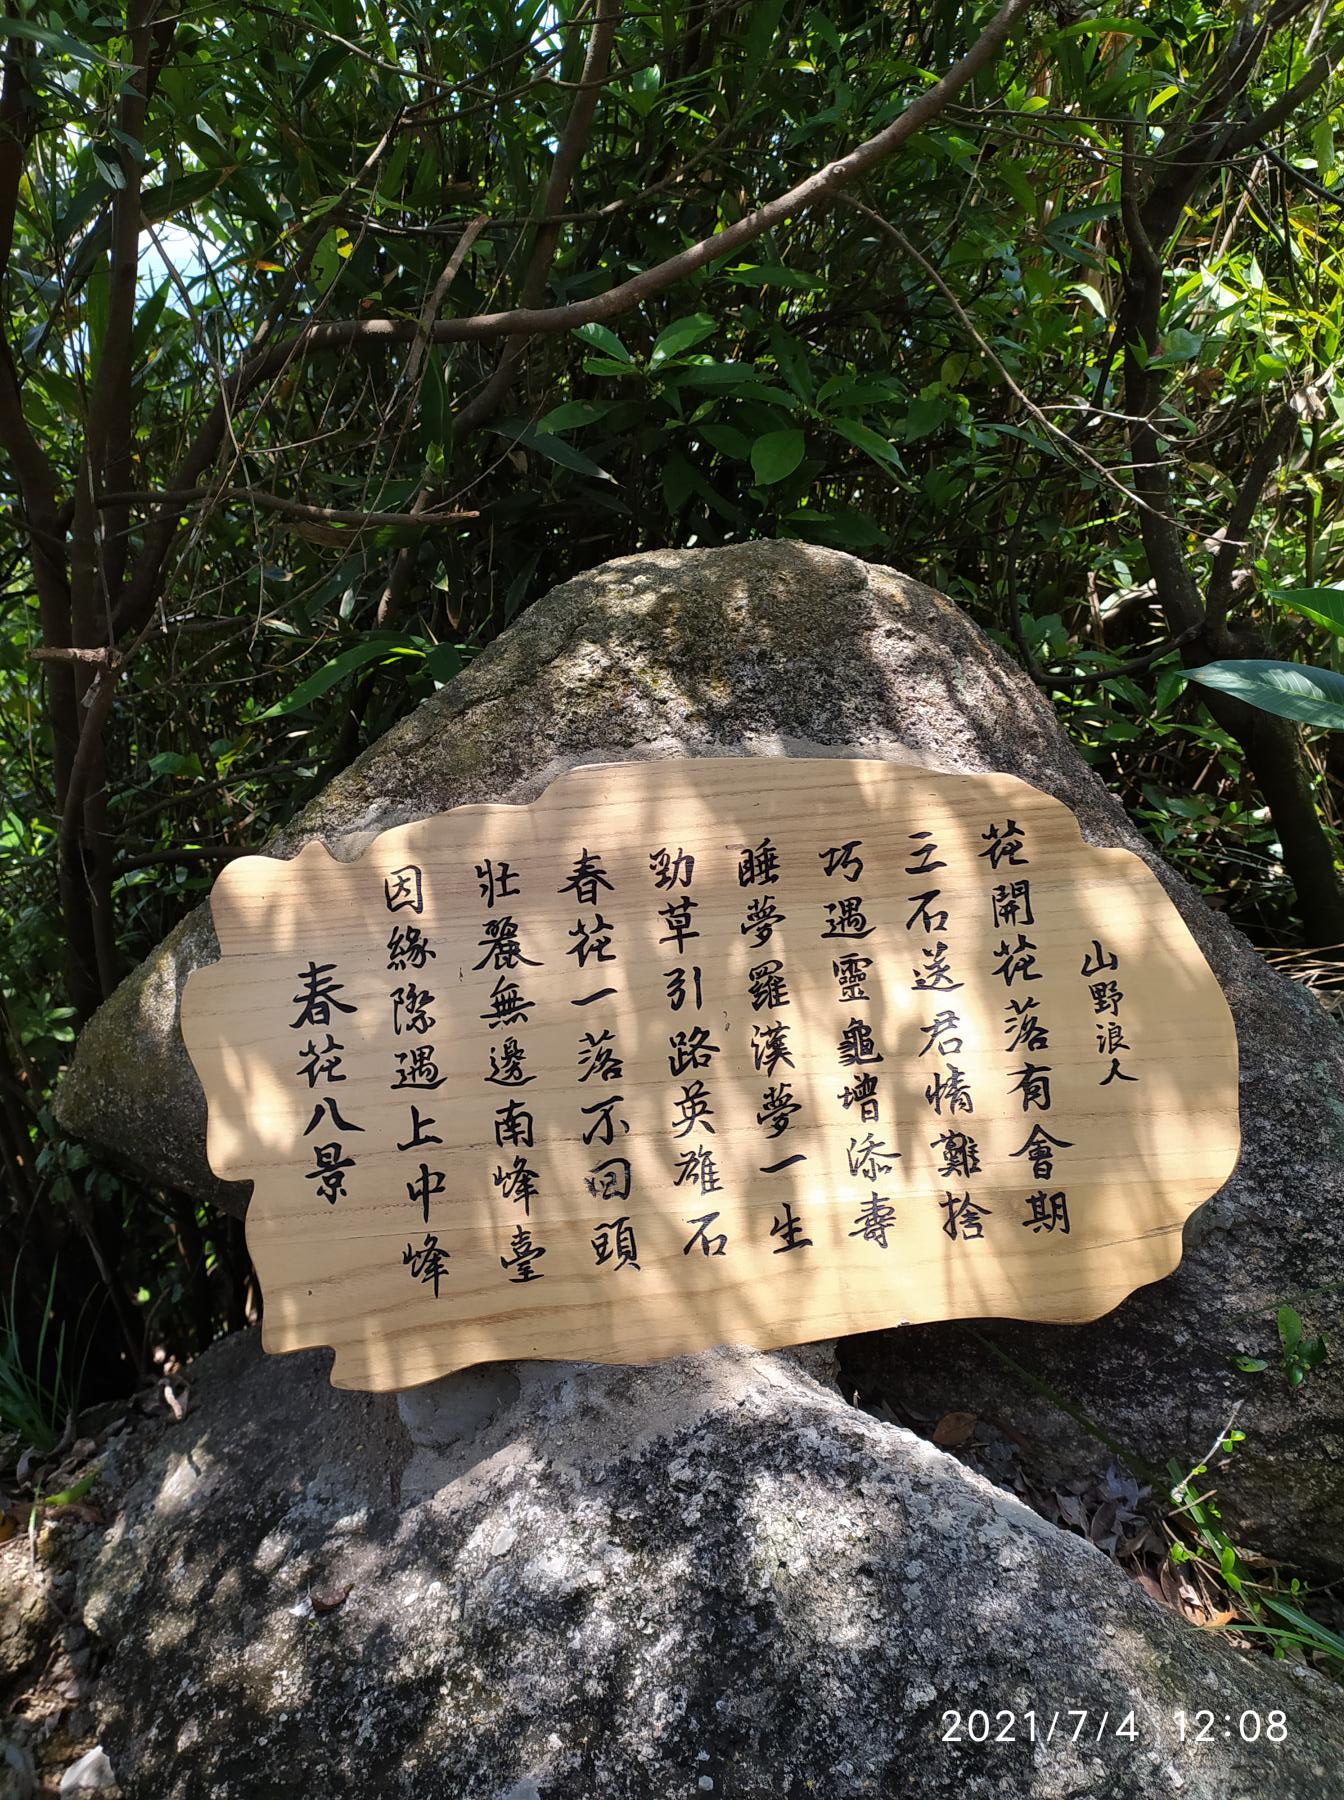 春花八景
因緣際遇上中峰
壯麗無邊南峰臺
春花一落不回頭
勁草引路英雄石
睡夢羅漢夢一生
巧遇靈龜增添壽
三石送君情難捨
花開花落有會期
山野浪人
2021/7/4 12:08